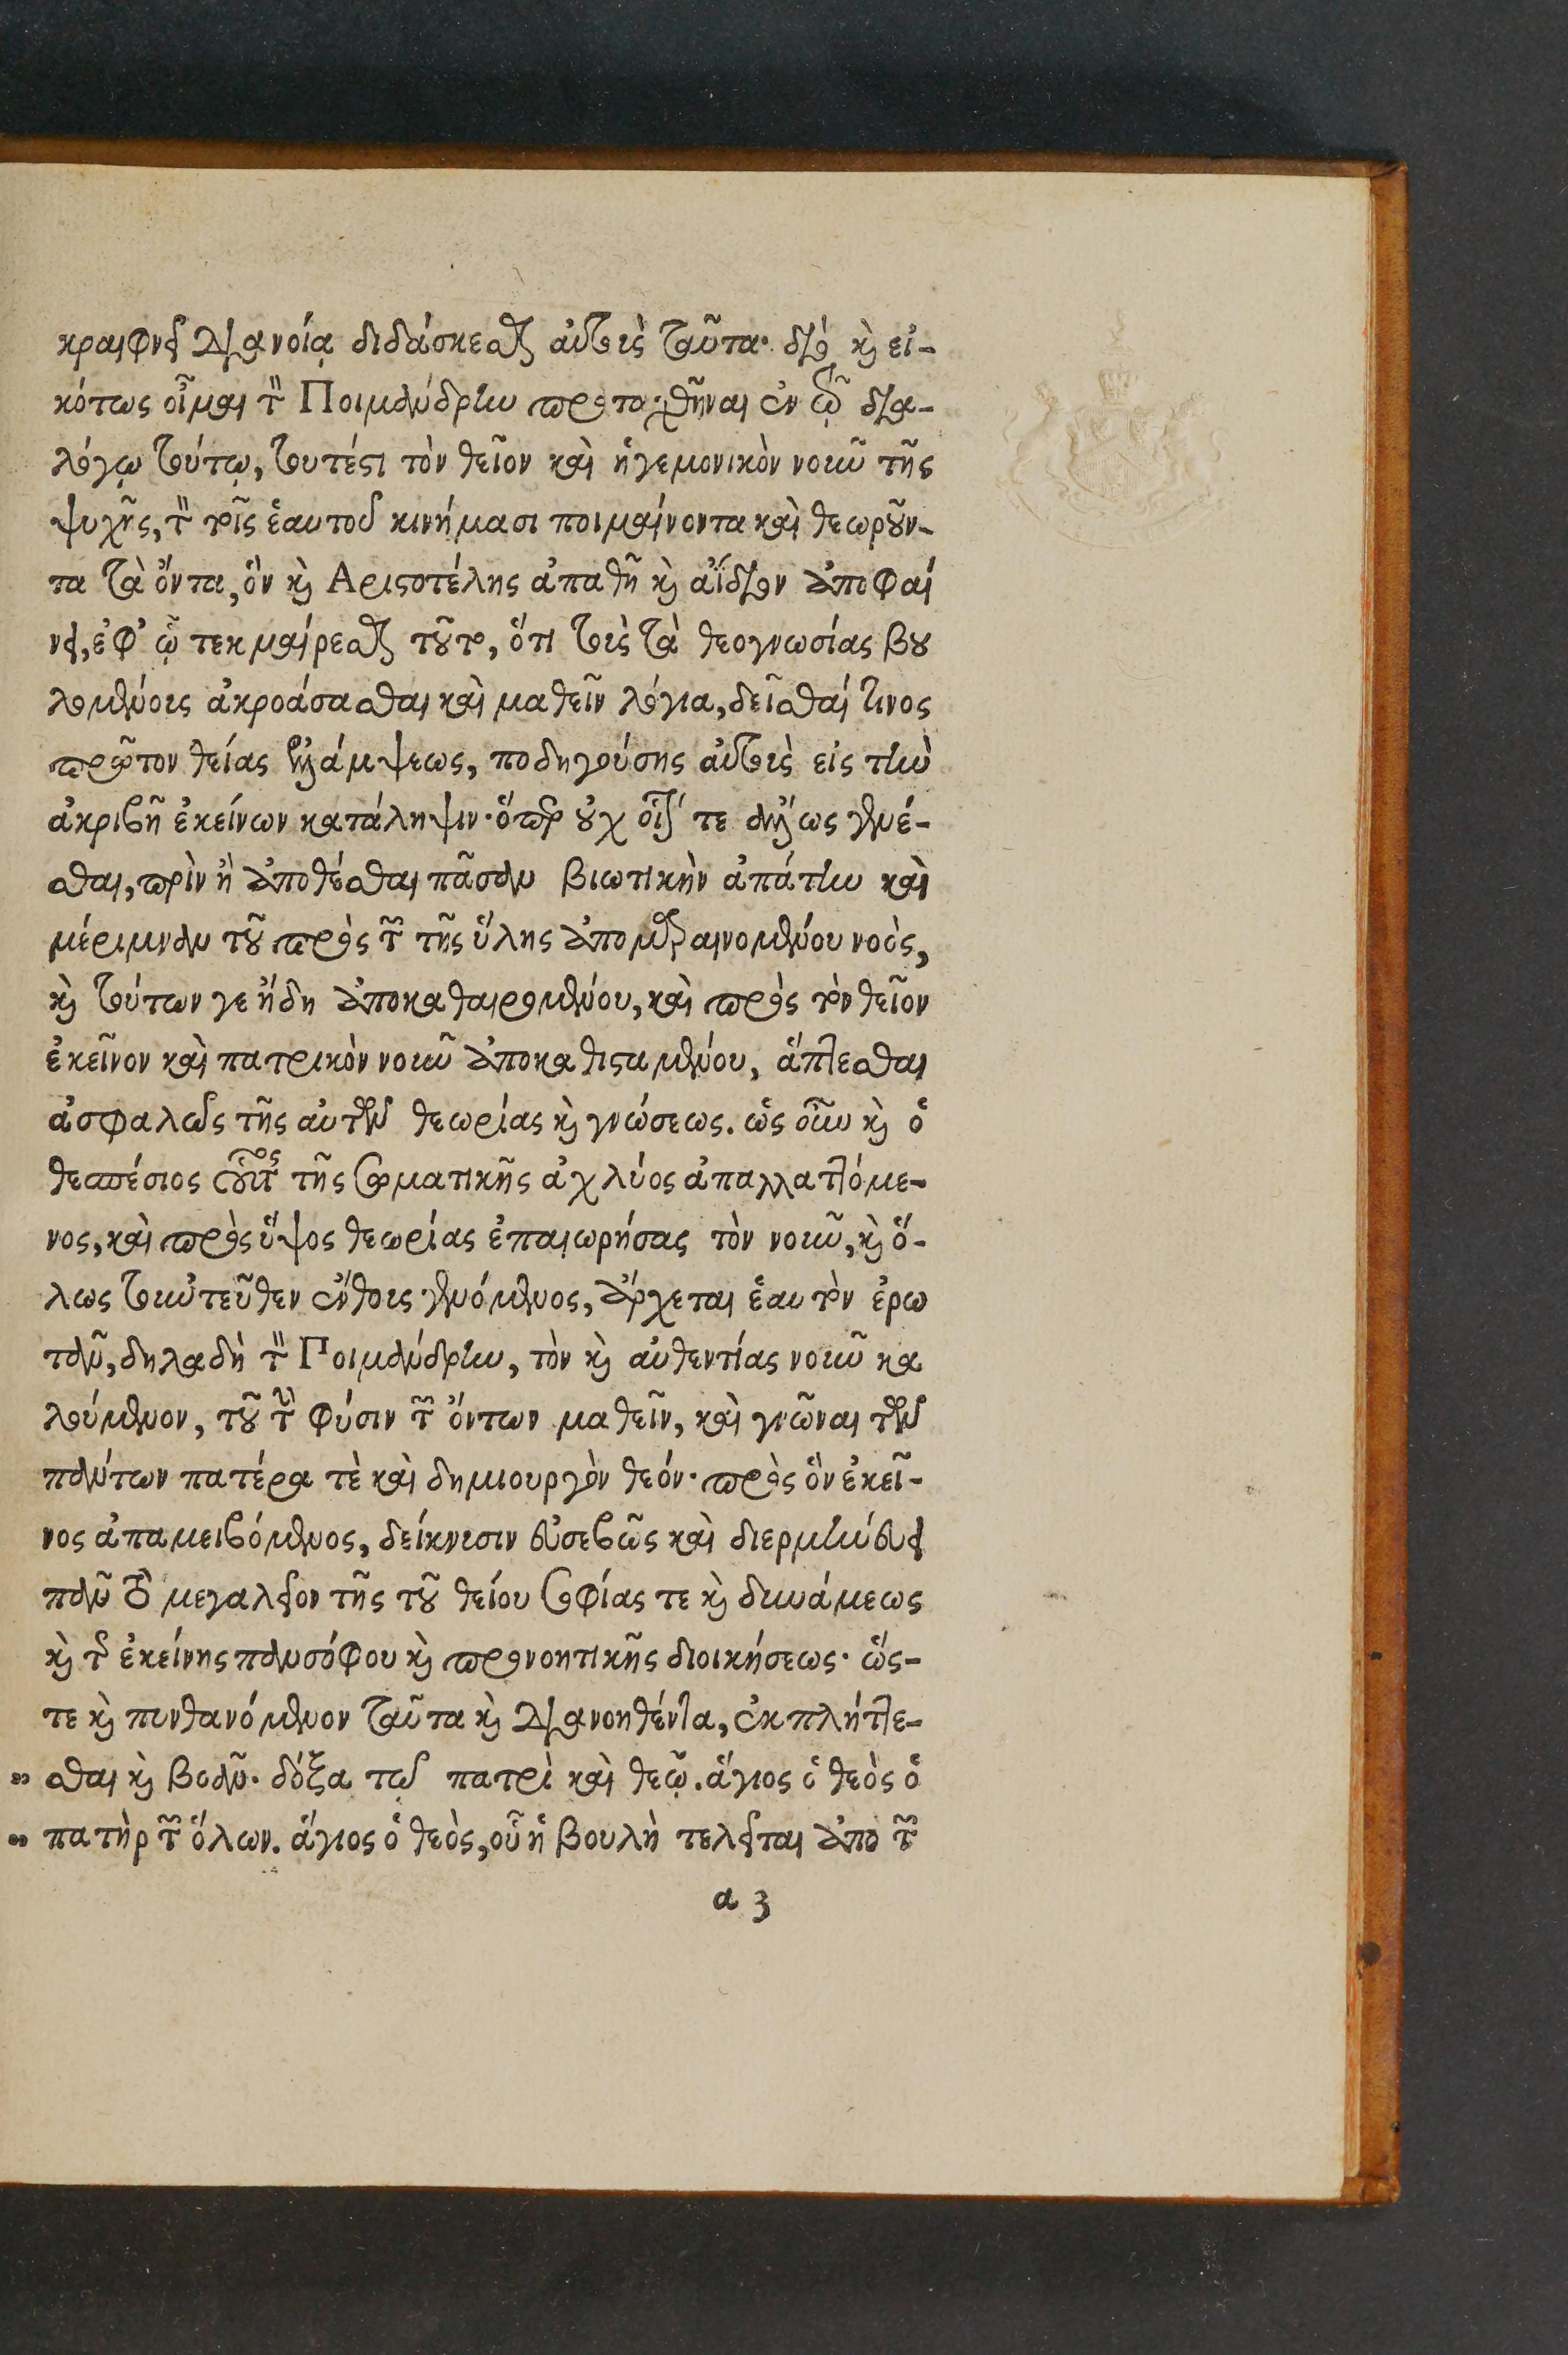 κραιφνεῖ διανοίᾳ διδάσκεσθαι αὐτοὺς ταῦτα· διὸ καὶ εἰ-
κότως οἶμαι τὸν Ποιμάνδρην προταχθῆναι ἐν τῷ δια-
λόγῳ τούτῳ, τουτέστι τὸν θεῖον καὶ ἡγεμονικὸν νοῦν τῆς
ψυχῆς, τὸν τοῖς ἑαυτοῦ κινήμασι ποιμαίνοντα καὶ θεωροῦν-
τα τὰ ὄντα, ὃν καὶ Αριστοτέλης ἀπαθῆ καὶ ἀΐδιον ἀποφαί
νει, ἐφ' ᾧ τεκμαίρεσθαι τοῦτο, ὅτι τοῖς τὰ θεογνωσίας βου
λομένοις ἀκροάσασθαι καὶ μαθεῖν λόγια, δεῖσθαί τινος
πρῶτον θείας ἐλλάμψεως, ποδηγούσης αὐτοὺς εἰς τὴν
ἀκριβῆ ἐκείνων κατάληψιν· ὅπερ οὐχ οἷόν τε ἄλλως γενέ-
σθαι, πρὶν ἢ ἀποθέσθαι πᾶσαν βιωτικὴν ἀπάτην καὶ
μέριμναν τοῦ πρὸς τῶν τῆς ὕλης ἀπομιαινομένου νοὸς,
καὶ τούτων γε ἤδη ἀποκαθαιρομένου, καὶ πρὸς τὸν θεῖον
ἐκεῖνον καὶ πατρικὸν νοῦν ἀποκαθισταμένου, ἅπτεσθαι
ἀσφαλῶς τῆς αὐτῶν θεωρίας καὶ γνώσεως. ὡς οὖν καὶ ὁ
θεσπέσιος οὗτος τῆς σωματικῆς ἀχλύος ἀπαλλαττόμε-
νος, καὶ πρὸς ὕψος θεωρίας ἐπαιωρήσας τὸν νοῦν, καὶ ὅ-
λως τηνυτεῦθεν ἔνθους γενόμενος, ἄρχεται ἑαυτὸν ἐρω
τᾶν, δηλαδὴ τὸν Ποιμάνδρην, τὸν καὶ αὐθεντίας νοῦν κα
λούμενον, τοῦ τὴν φύσιν τῶν ὄντων μαθεῖν, καὶ γνῶναι τὸν
πάντων πατέρα τὲ καὶ δημιουργὸν θεόν· πρὸς ὃν ἐκεῖ-
νος ἀπαμειβόμενος, δείκνυσιν εὐσεβῶς καὶ διερμηνεύει
πᾶν τὸ μεγαλεῖον τῆς τοῦ θείου σοφίας τε καὶ δυνάμεως
καὶ τῆς ἐκείνης πανσόφου καὶ προνοητικῆς διοικήσεως· ὥς-
τε καὶ πυνθανόμενον ταῦτα καὶ διανοηθέντα, ἐκπλήττε-
" σθαι καὶ βοᾶν· δόξα τῷ πατρὶ καὶ θεῷ. ἅγιος ὁ θεὸς ὁ
" πατὴρ τῶν ὅλων. ἅγιος ὁ θεὸς, οὗ ἡ βουλὴ τελεῖται ἀπὸ τῶν
a 3